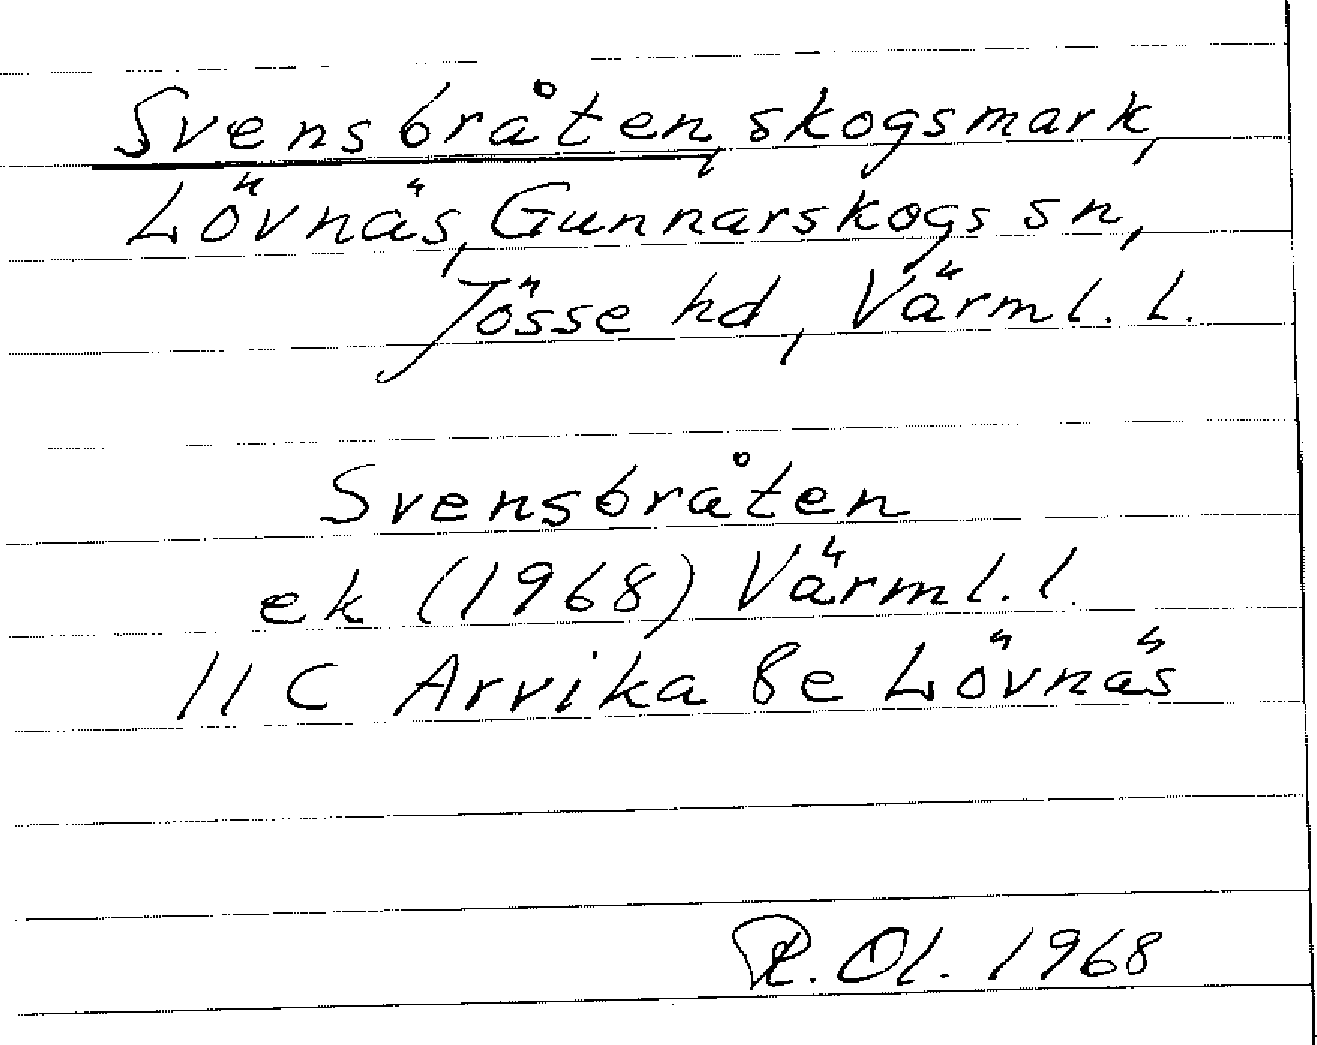 Svensbråten, skogsmark,
Lövnäs, Gunnarskogs sn,
Jösse hd, Värml. l.
Svensbråten
ek (1968) Värml. l.
11 C Arvika 8e Lövnäs
R. Ol. 1968